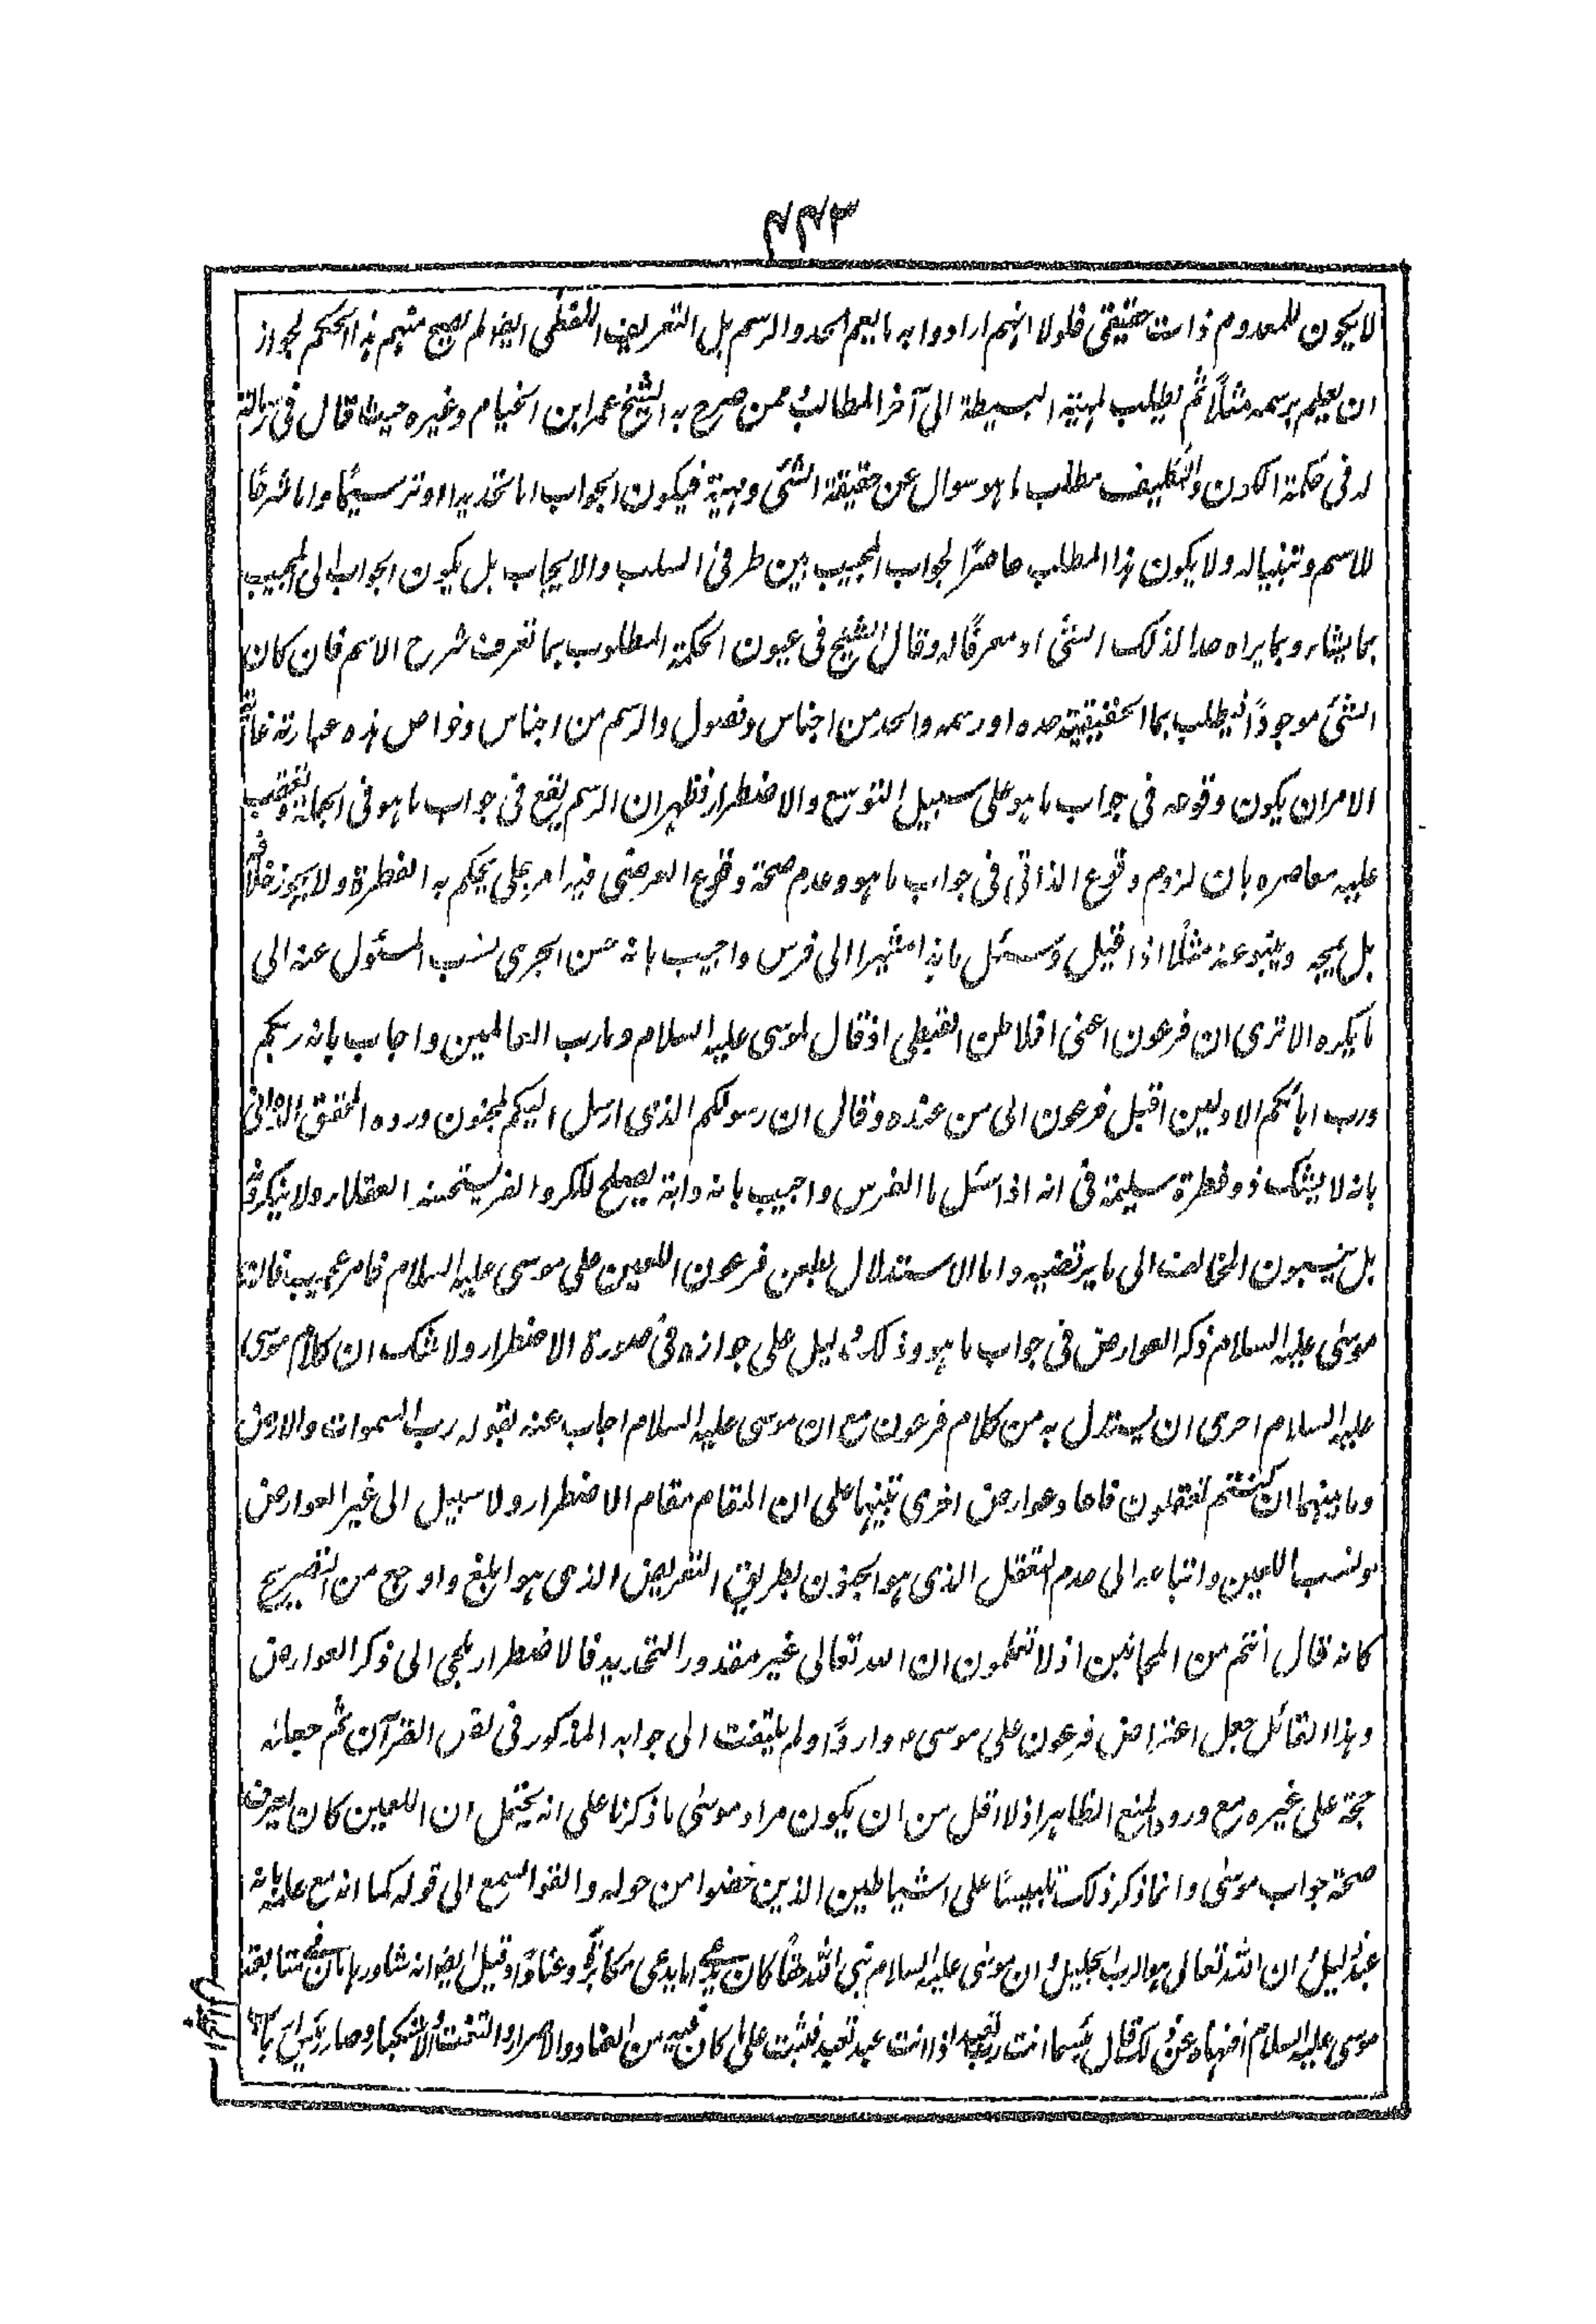 ۴۴۳
لا يكون للمعدوم ذات حقيقي فلولا انهم ارادوا به ما يعم الحد والرسم بل التعريف اللفظي ايضا لم يصح منهم هذا الحكم لجواز
ان يعلم برسمه مثلاً ثم يطلب لهيته البسيطة الى آخر المطالب وممن صرح به الشيخ عمر ابن الخيام وغيره حيث قال في رسالة
له في حكمة الكون والتكليف مطلب ما هو سوال عن حقيقة الشئ ومهية فيكون الجواب اما تحديدا او ترسيمًا واما شرحًا
للاسم وتبنيا له ولا يكون هذا المطلب حاصرًا لجواب المجيب بين طرفى السلب والايجاب بل يكون الجواب الى المجيب
بما يشاء وبما يراه حدا لذلك الشئ او معرفًا له وقال الشيخ فى عيون الحكمة المطلوب بما تعرف شرح الاسم فان كان
الشئ موجودًا فيطلب بما الحقيقية حده او رسمه والحد من اجناس وفصول والرسم من اجناس وخواص هذه عبارته غاية
الامر ان يكون وقوعه فى جواب ما هو على سبيل التوسع والاضطرار فظهر ان الرسم يقع فى جواب ما هو فى الجملة وتعقب
عليه معاصره بان لزوم وقوع الذاتى فى جواب ما هو وعدم صحة وقوع العرضى فيه امر جلى يحكم به الفطرة ولا يجوز خلافه
بل يمجه وينبو عنه مثلًا اذا قيل وسئل ما هذا مشيرا الى فرس واجيب بانه حسن الجرى لنسب المسئول عنه الى
ما يكره الا ترى ان فرعون اعنى افلاطن القبطى اذ قال لموسى عليه السلام وما رب العالمين واجاب بانه ربكم
ورب ابائكم الاولين اقبل فرعون الى من عنده وقال ان رسولكم الذى ارسل اليكم لمجنون ورده المحقق الدوانى
بانه لا يشك ذو فطرة سليمة فى انه اذا سئل ما الفرس واجيب بانه دابة يصلح للكر والفر يستحسنه العقلاء ولا ينكرونه
بل ينسبون المخالف الى ما يرتضيه واما الاستدلال بطعن فرعون اللعين على موسى عليه السلام فامر عجيب فان
موسى عليه السلام ذكر العوارض فى جواب ما هو وذلك دليل على جوازه فى صورة الاضطرار ولا شك ان كلام موسى
عليه السلام احرى ان يستدل به من كلام فرعون مع ان موسى عليه السلام اجاب عنه بقوله رب السموات والارض
وما بينهما ان كنتم تعقلون فاعاد عوارض اخرى تنبيها على ان المقام مقام الاضطرار ولا سبيل الى غير العوارض
ونسب اللعين واتباعه الى عدم التعقل الذى هو الجنون بطريق التعريض الذى هو ابلغ واوجع من التصريح
كانه قال انتم من المجانين اذ لا تعلمون ان الله تعالى غير مقدور التحديد فالاضطرار ملجى الى ذكر العوارض
وهذا القائل جعل اعتراض فرعون على موسى ؑ واردًا ولم يلتفت الى جوابه المذكور فى نص القرآن ثم جعله
حجة على غيره مع ورود المنع الظاهر اذ لا اقل من ان يكون مراد موسى ما ذكرنا على انه يحتمل ان اللعين كان يعرف
صحة جواب موسى وانما ذكر ذلك تلبيسًا على الشياطين الذين حضروا من حوله والقوا السمع الى قوله كما انه مع علمه بانه
عبد ذليل وان الله تعالى هو الرب الجليل وان موسى عليه السلام نبى الله حقًا كان يدعى ما يدعى مكابرة وعنادًا وقيل ايضا انه شاور هامان فى متابعة
موسى عليه السلام فنهاه عن ذلك قال بينما انت رب تعبد اذا انت عبد تعبد فثبت على ما كان فيه من العناد والاصرار والتعنت والاستكبار وصار